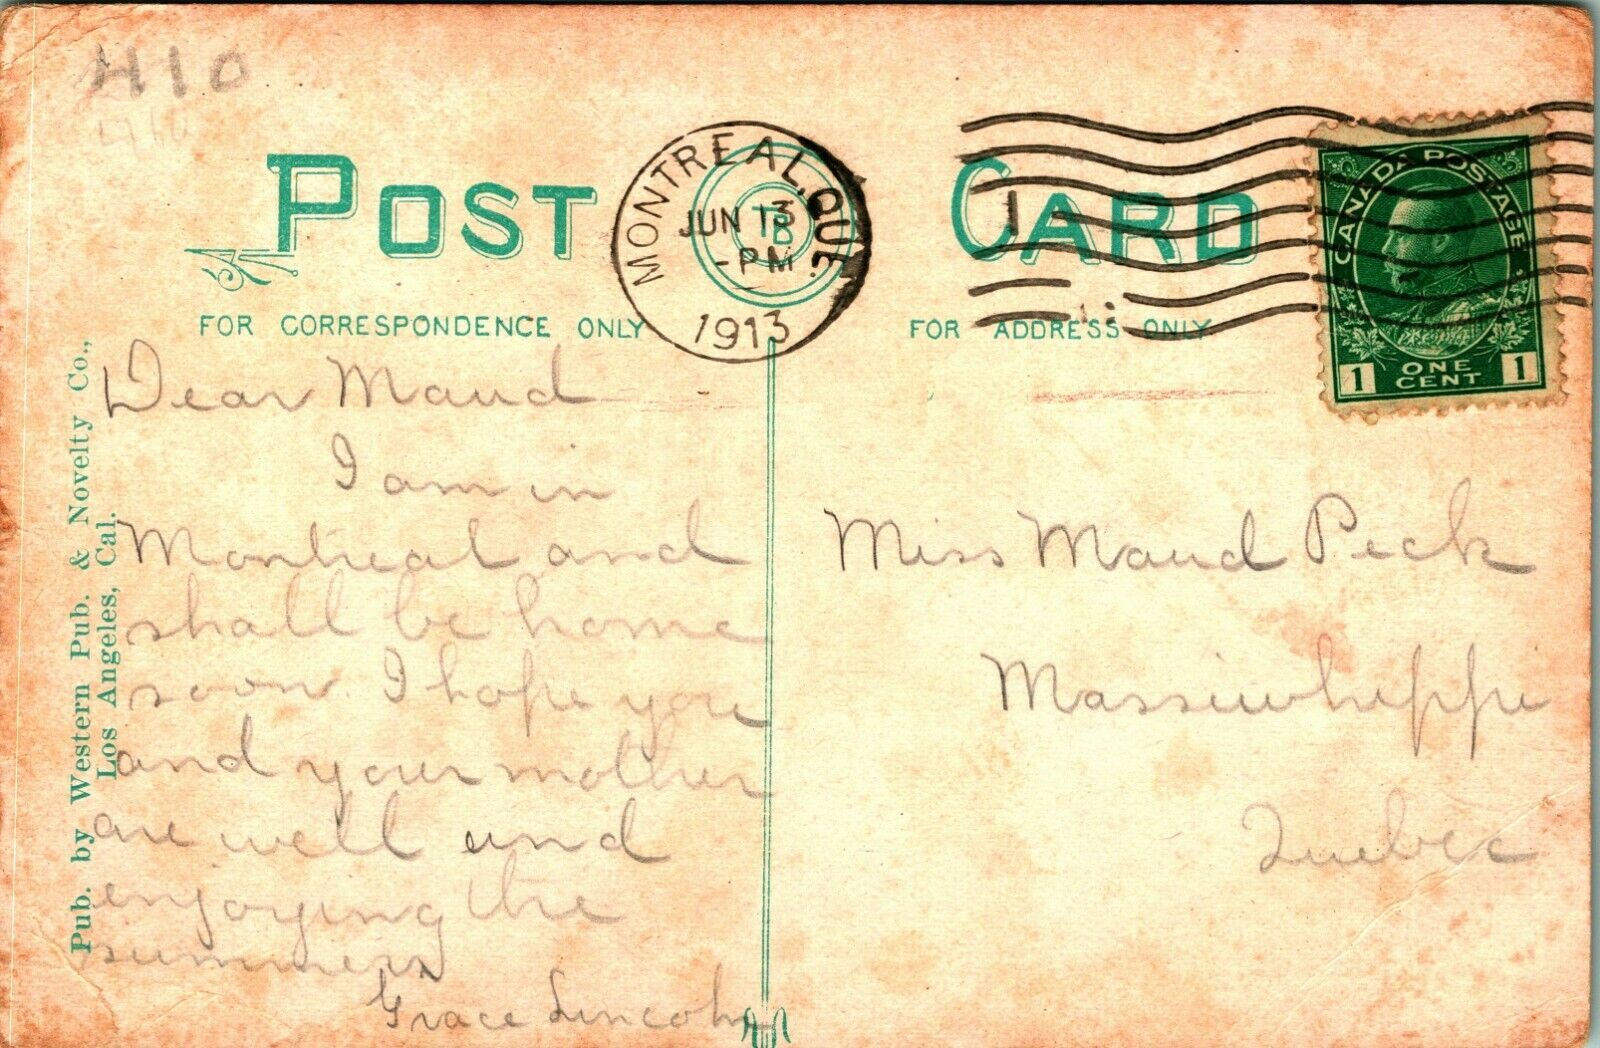 410
410
POST CARD
FOR CORRESPONDENCE ONLY
FOR ADDRESS ONLY
MONTREAL, QUE.
JUN 13
-PM
1913
1
CANADA POSTAGE
1 ONE CENT 1
Pub. by Western Pub. & Novelty Co.,
Los Angeles, Cal.
Dear Maud
I am in
Montreal and
shall be home
soon. I hope you
and your mother
are well and
enjoying the
summer.
Grace Lincoln
Miss Maud Peck
Massiwhippi
Quebec